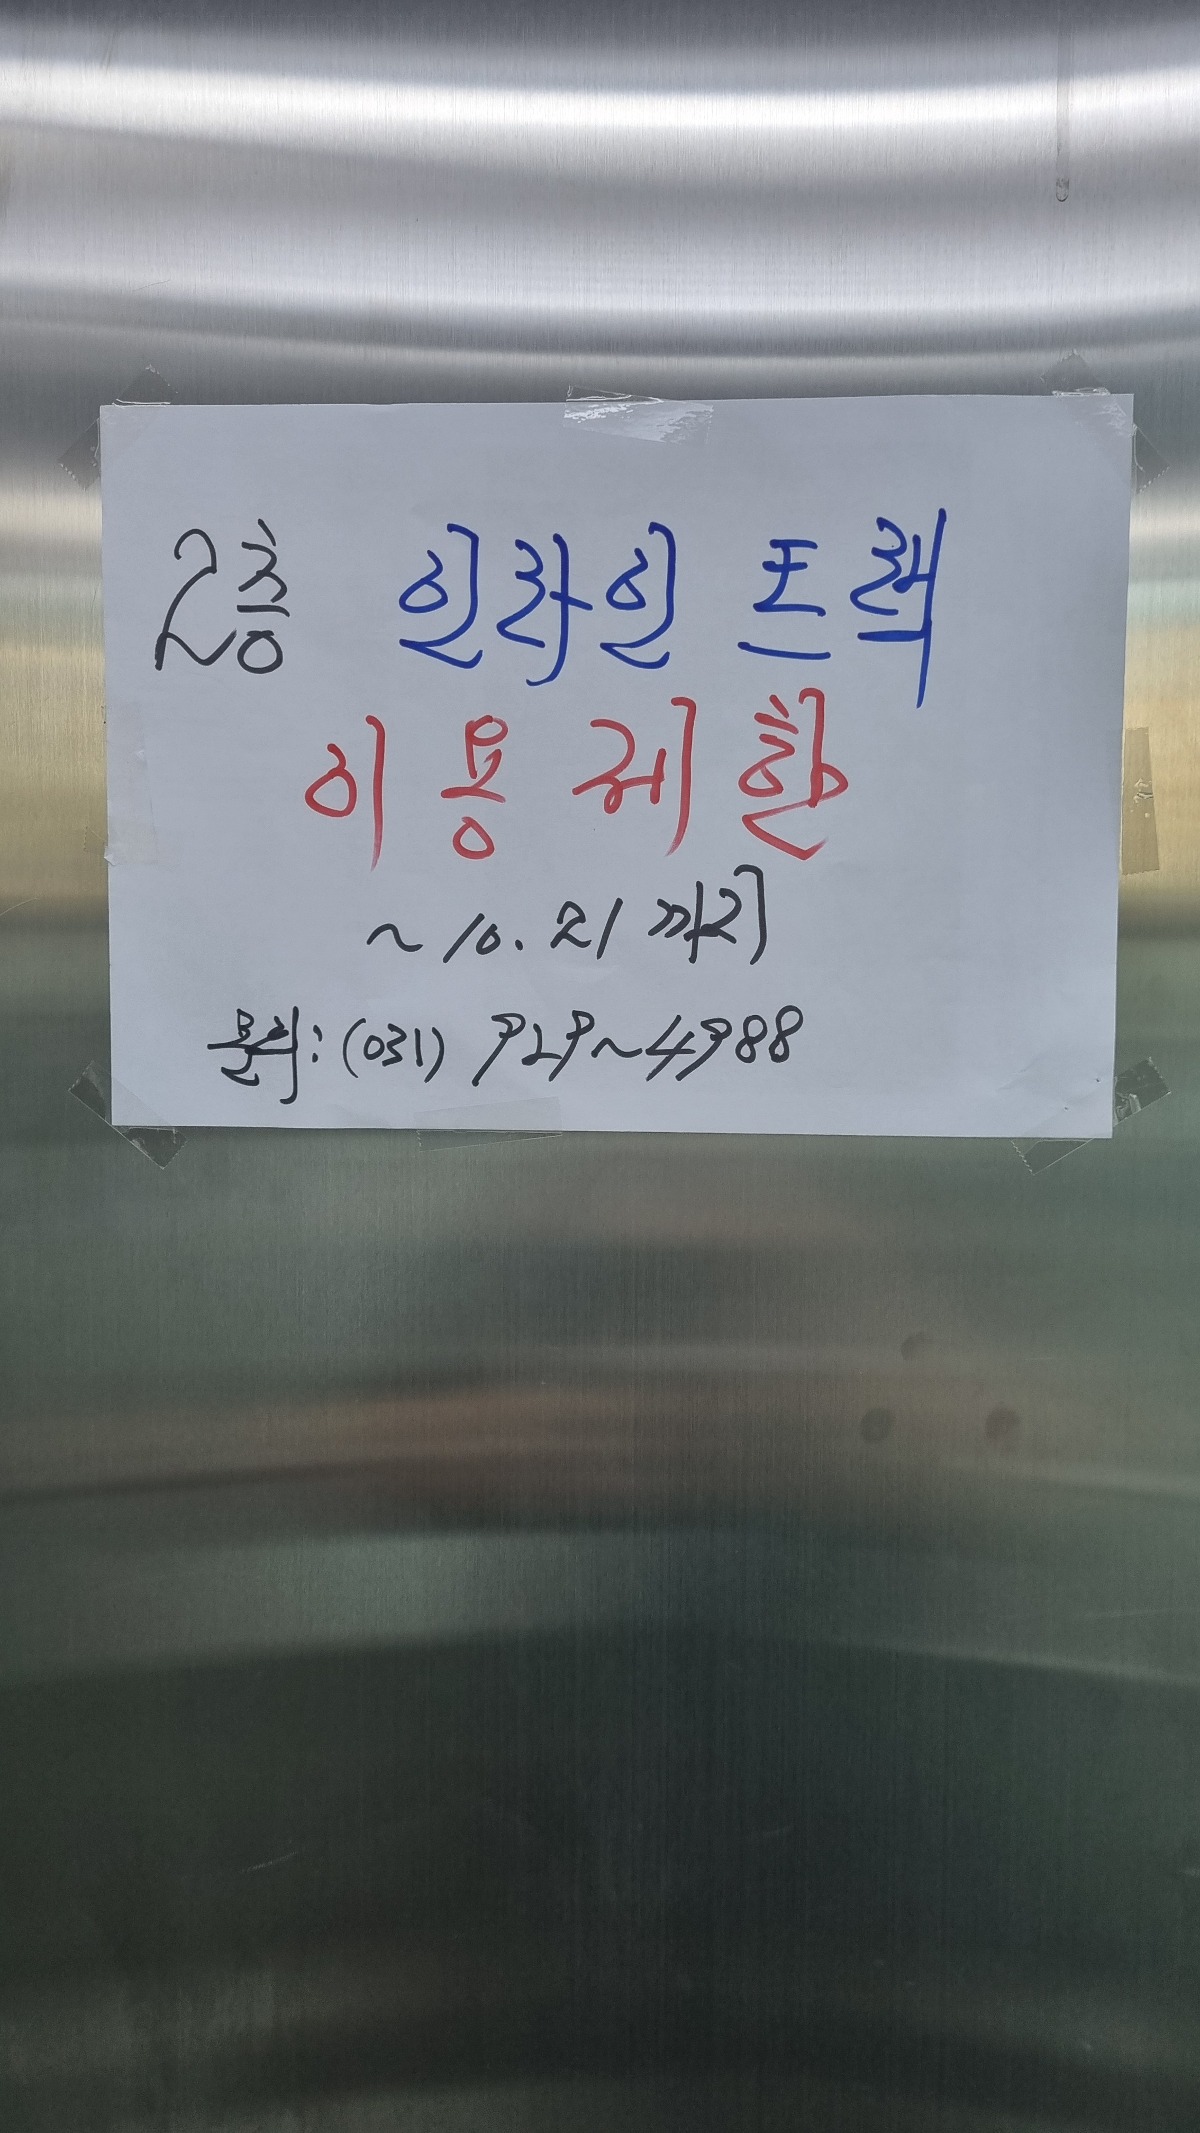 2층 인라인 트랙
이용제한
~10. 21까지
문의: (031) 929~4988